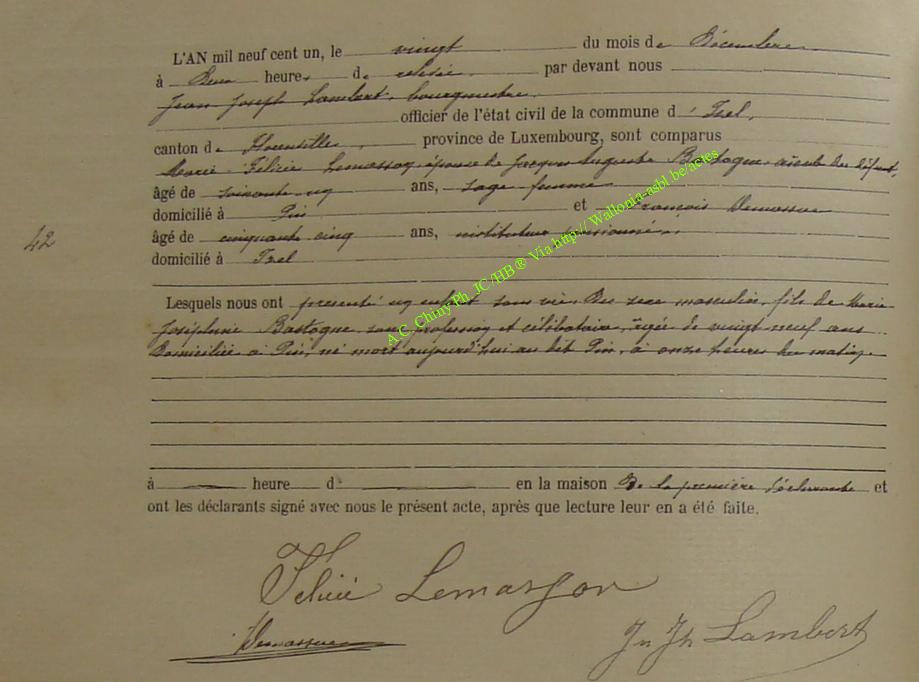 L'AN mil neuf cent un, le vingt du mois de Décembre
à Deux heures de relevée par devant nous
Jean Joseph Lambert, bourgmestre
officier de l'état civil de la commune d'Izel,
canton de Florenville, province de Luxembourg, sont comparus
Marie Félicie Lemasson, épouse de Jacques Auguste Bastogne, aïeule du défunt,
âgé de soixante un ans, sage femme
domicilié à Pin et François Demasseue
âgé de cinquante cinq ans, instituteur pensionné;
42
domicilié à Izel
Lesquels nous ont présenté un enfant sans vie, du sexe masculin, fils de Marie
Joséphine Bastogne, sans profession et célibataire, âgée de vingt neuf ans
domiciliée à Pin, né mort aujourd'hui au dit Pin, à onze heures du matin.
à heure d en la maison de la première déclarante et
ont les déclarants signé avec nous le présent acte, après que lecture leur en a été faite.
Félicie Lemasson
Jn Jh Lambert
A.C. Chiny Ph. JC/HB ® Via http// Wallonia-asbl be/actes